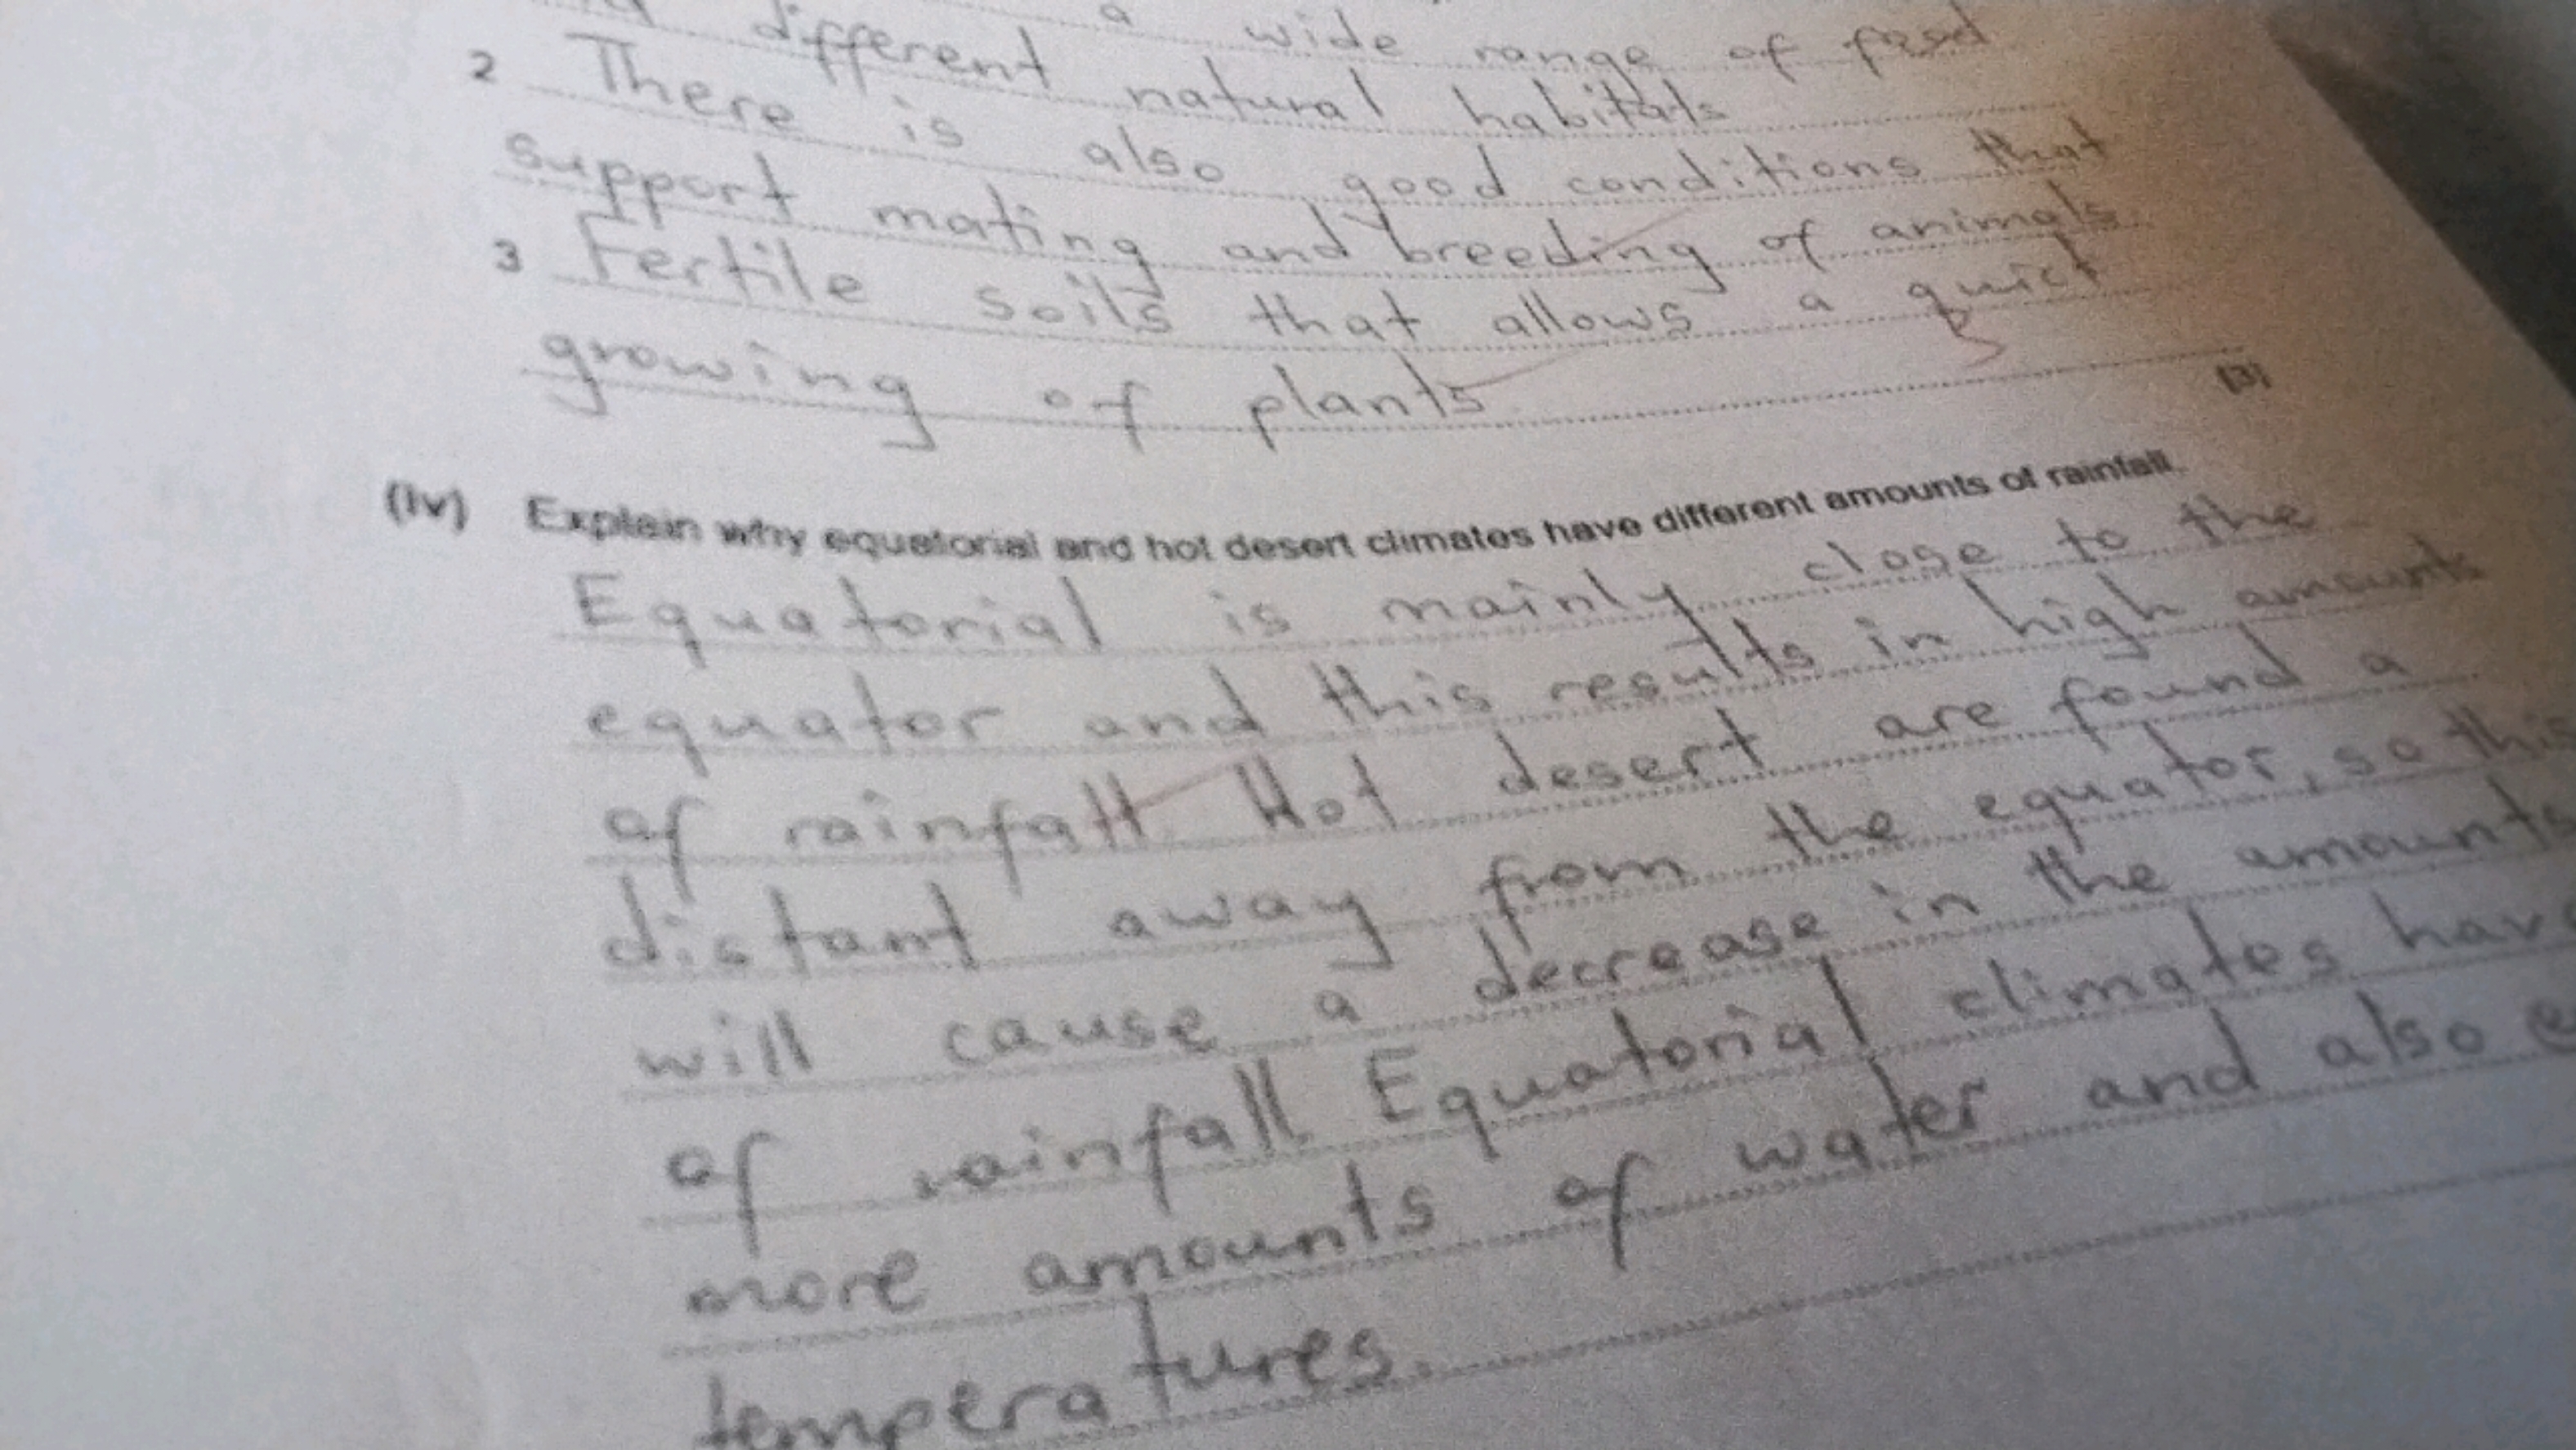 a wide range of food
different natural habitats
2 There is also good conditions that
support mating and breeding of animals.
3 Fertile soils that allows a quick
growing of plants
(3)
(iv) Explain why equatorial and hot desert climates have different amounts of rainfall.
Equatorial is mainly close to the
equator and this results in high amounts
of rainfall Hot desert are found a
distant away from the equator, so this
will cause a decrease in the amounts
of rainfall. Equatorial climates have
more amounts of water and also
temperatures.